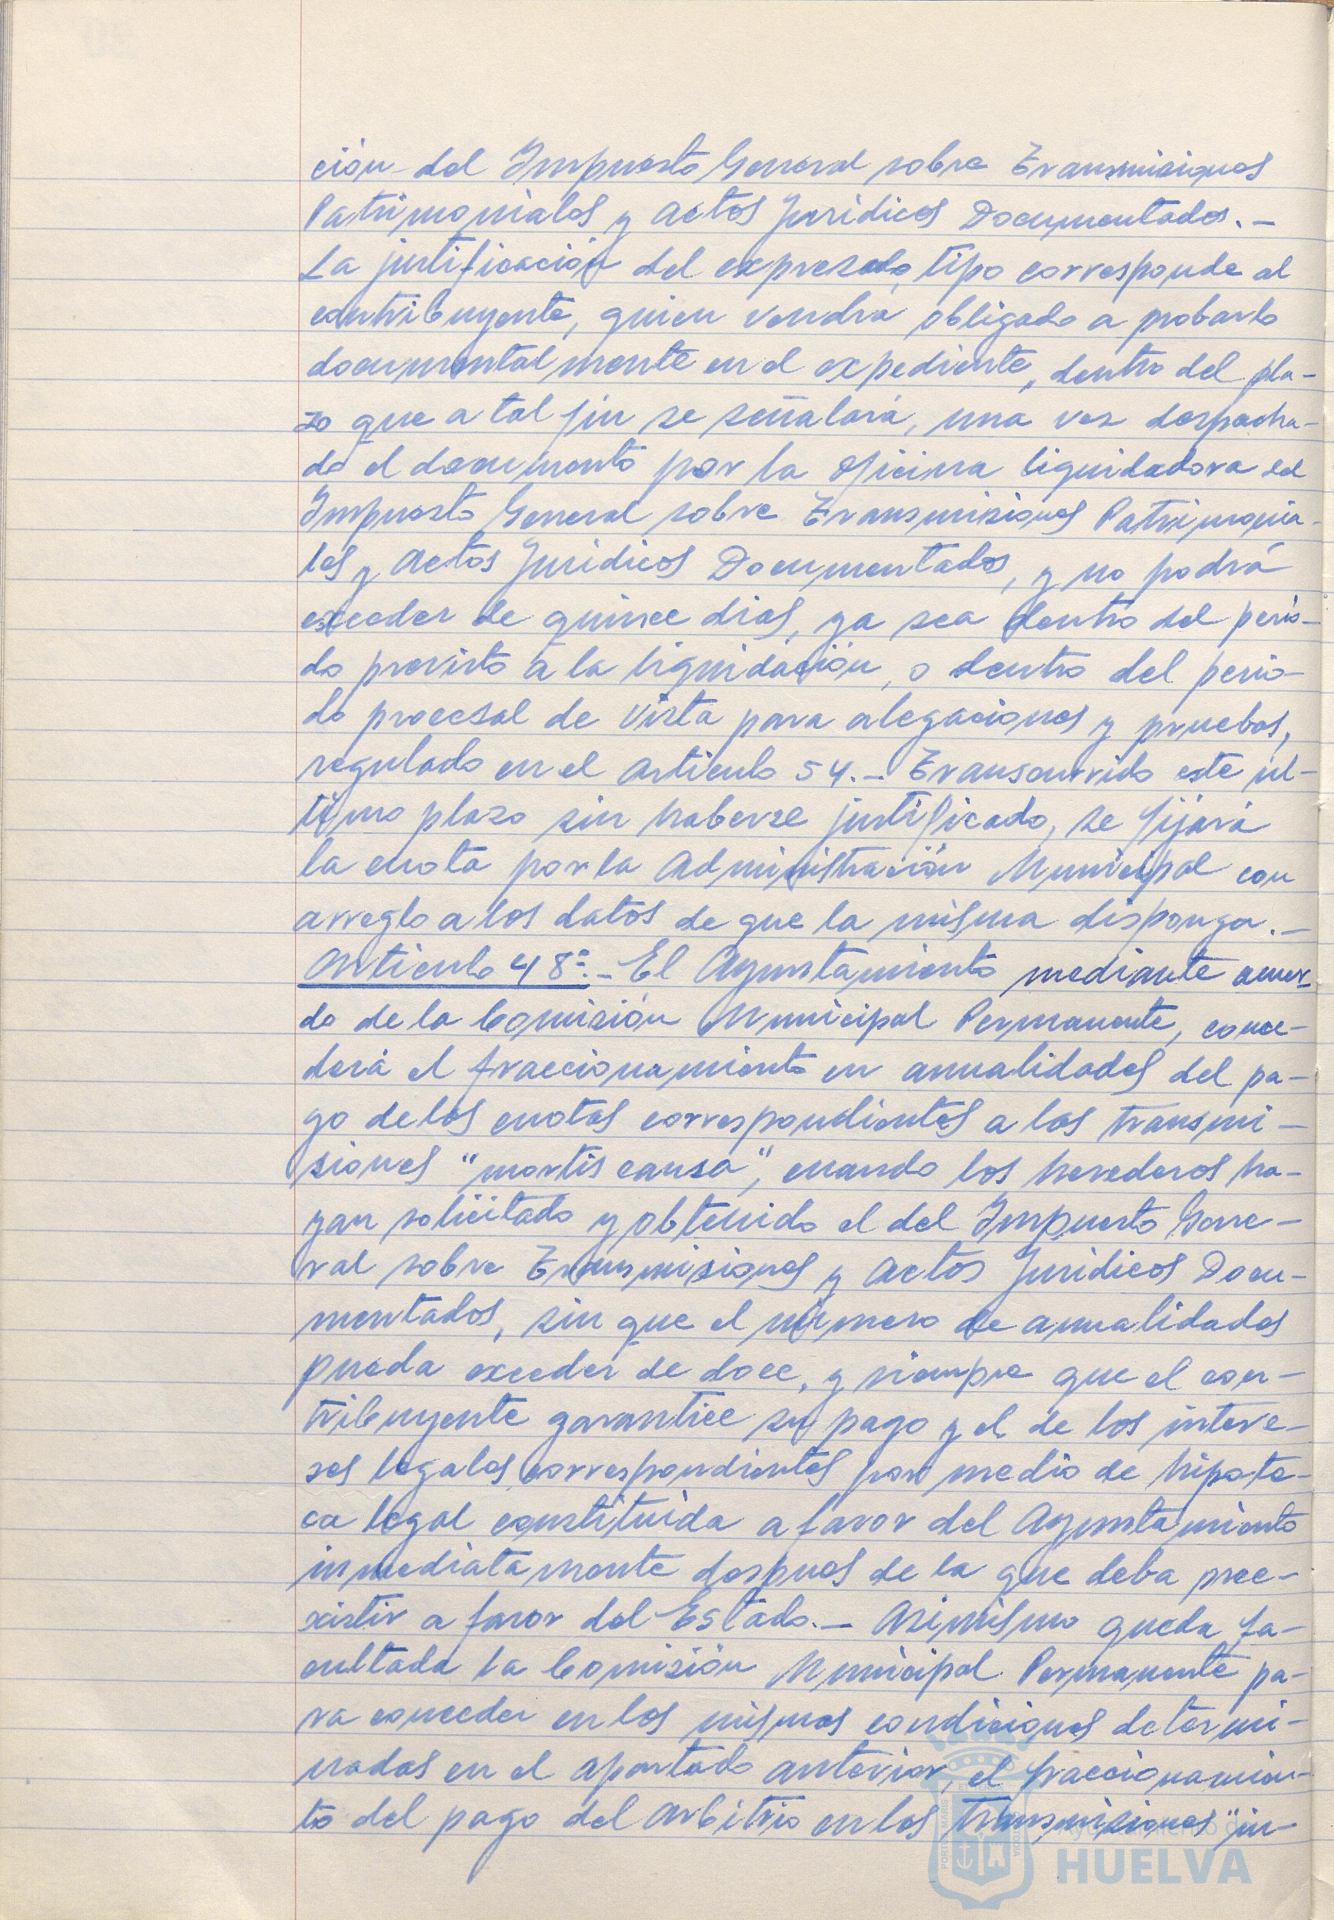 ción del Impuesto General sobre Transmisiones
Patrimoniales y Actos Jurídicos Documentados.-
La justificación del expresado tipo corresponde al
contribuyente, quien vendrá obligado a probarlo
documentalmente en el expediente, dentro del pla-
zo que a tal fin se señalará, una vez despacha-
do el documento por la Oficina liquidadora del
Impuesto General sobre Transmisiones Patrimonia-
les y Actos Jurídicos Documentados, y no podrá
exceder de quince días, ya sea dentro del perio-
do previsto a la liquidación, o dentro del perio-
do procesal de vista para alegaciones y pruebas,
regulado en el artículo 54.- Transcurrido este úl-
timo plazo sin haberse justificado, se fijará
la cuota por la Administración Municipal con
arreglo a los datos de que la misma disponga.-
Artículo 48º.- El Ayuntamiento mediante acuer-
do de la Comisión Municipal Permanente, conce-
derá el fraccionamiento en anualidades del pa-
go de las cuotas correspondientes a las transmi-
siones "mortis causa", cuando los herederos ha-
yan solicitado y obtenido el del Impuesto Gene-
ral sobre Transmisiones y Actos Jurídicos Docu-
mentados, sin que el número de anualidades
pueda exceder de doce, y siempre que el con-
tribuyente garantice su pago y el de los intere-
ses legales correspondientes por medio de hipote-
ca legal constituida a favor del Ayuntamiento
inmediatamente después de la que deba pree-
xistir a favor del Estado.- Asimismo queda fa-
cultada la Comisión Municipal Permanente pa-
ra conceder en las mismas condiciones determi-
nadas en el apartado anterior, el fraccionamien-
to del pago del arbitrio en las transmisiones "in-
Ayuntamiento de
HUELVA